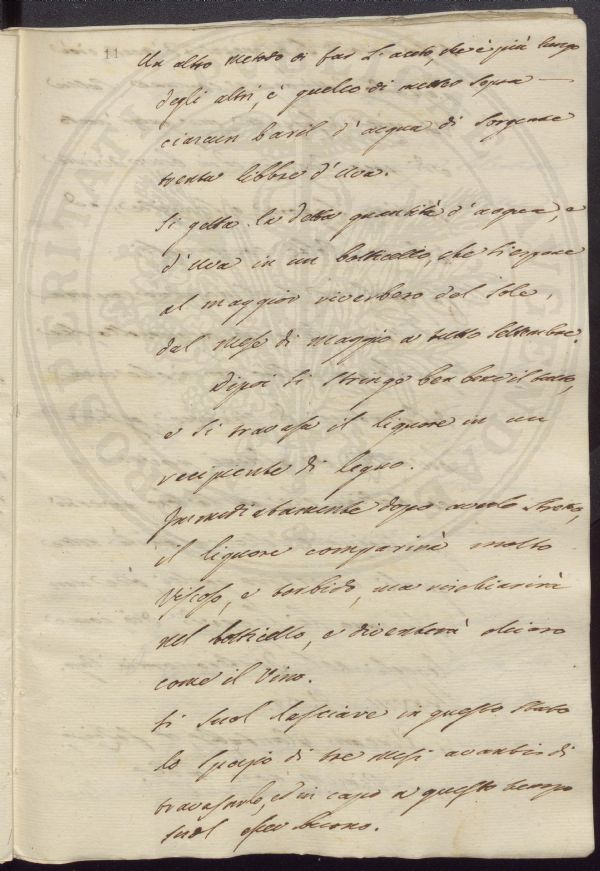 11
Un altro metodo di far L'aceto, che è più lungo
degli altri, è quello di metter sopra
ciascun baril d'acqua di sorgente
trenta libbre d'Uva.
Si getta la detta quantità d'acqua, e
d'Uva in un botticello, che si espone
al maggior riverbero del Sole,
dal Mese di Maggio a tutto Settembre.
Dipoi si stringe ben bene il tutto,
e si travasa il liquore in un
recipiente di legno.
Immediatamente dopo averlo stretto,
il liquore comparirà molto
Viscoso, e torbido, ma rischiarirà
nel botticello, e diventerà chiaro
come il Vino.
Si suol lasciare in questo stato
lo spazio di tre mesi avanti di
travasarlo, ed in capo a questo tempo
suol esser buono.